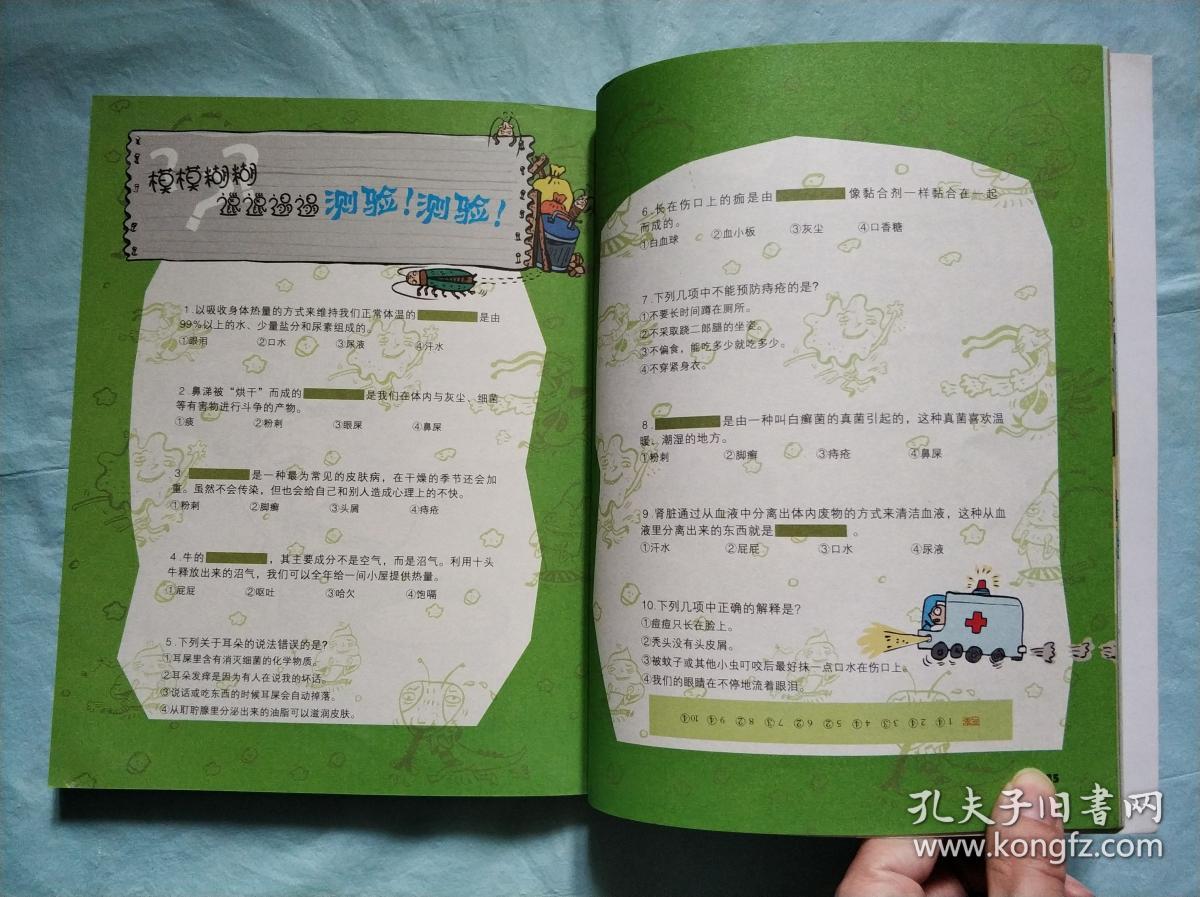 模模糊糊
邋邋遢遢测验!测验!
1.以吸收身体热量的方式来维持我们正常体温的 是由
99%以上的水、少量盐分和尿素组成的。
①眼泪 ②口水 ③尿液 ④汗水
2.鼻涕被“烘干”而成的 是我们在体内与灰尘、细菌
等有害物进行斗争的产物。
①痰 ②粉刺 ③眼屎 ④鼻屎
3. 是一种最为常见的皮肤病，在干燥的季节还会加
重。虽然不会传染，但也会给自己和别人造成心理上的不快。
①粉刺 ②脚癣 ③头屑 ④痔疮
4.牛的 ，其主要成分不是空气，而是沼气。利用十头
牛释放出来的沼气，我们可以全年给一间小屋提供热量。
①屁屁 ②呕吐 ③哈欠 ④饱嗝
5.下列关于耳朵的说法错误的是?
①耳屎里含有消灭细菌的化学物质。
②耳朵发痒是因为有人在说我的坏话。
③说话或吃东西的时候耳屎会自动掉落。
④从耵聍腺里分泌出来的油脂可以滋润皮肤。
6.长在伤口上的痂是由 像黏合剂一样黏合在一起
而成的。
①白血球 ②血小板 ③灰尘 ④口香糖
7.下列几项中不能预防痔疮的是?
①不要长时间蹲在厕所。
②不采取跷二郎腿的坐姿。
③不偏食，能吃多少就吃多少。
④不穿紧身衣。
8. 是由一种叫白癣菌的真菌引起的，这种真菌喜欢温
暖、潮湿的地方。
①粉刺 ②脚癣 ③痔疮 ④鼻屎
9.肾脏通过从血液中分离出体内废物的方式来清洁血液，这种从血
液里分离出来的东西就是 。
①汗水 ②屁屁 ③口水 ④尿液
10.下列几项中正确的解释是?
①痘痘只长在脸上。
②秃头没有头皮屑。
③被蚊子或其他小虫叮咬后最好抹一点口水在伤口上。
④我们的眼睛在不停地流着眼泪。
答案 1④ 2④ 3③ 4④ 5② 6② 7③ 8② 9④ 10④
孔夫子旧书网
www.kongfz.com